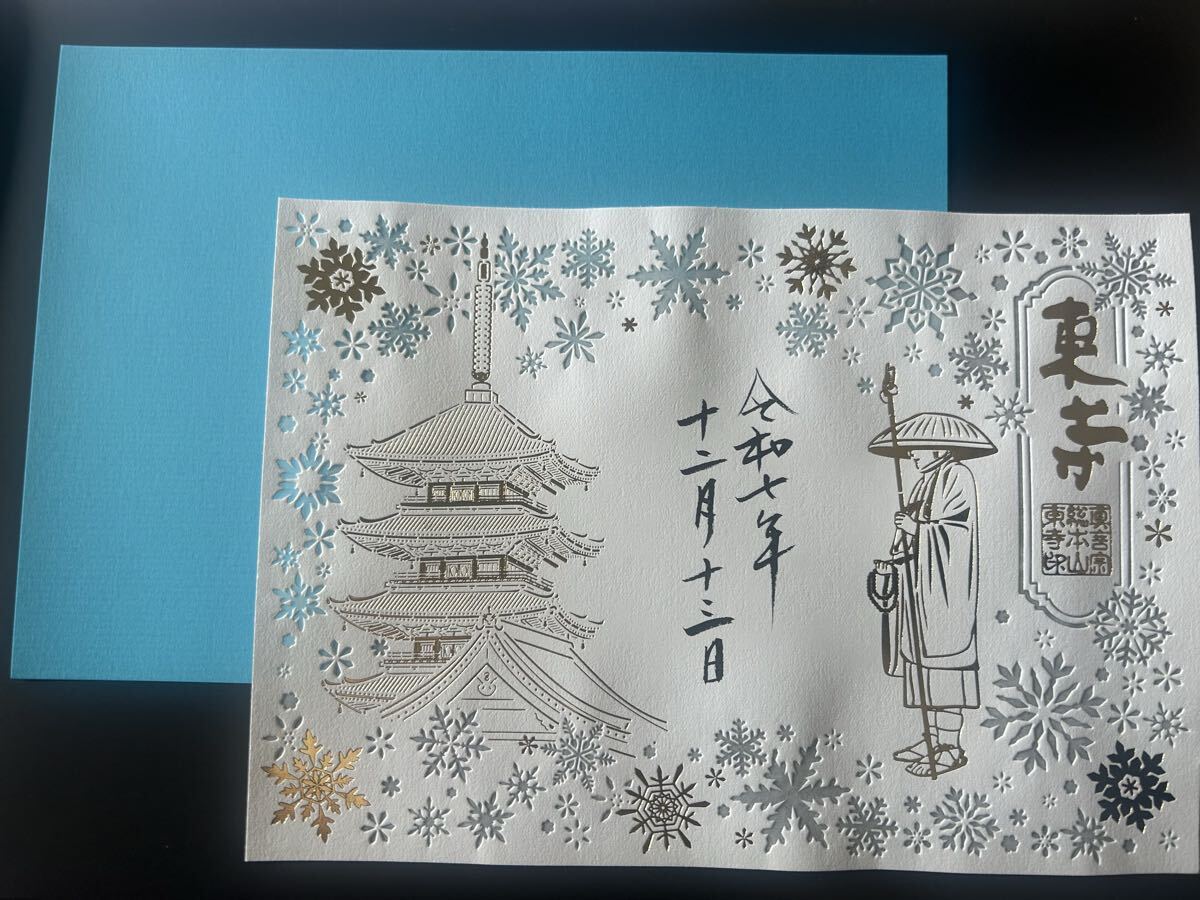 東寺
真言宗
総本山
東寺印
令和七年
十二月十三日